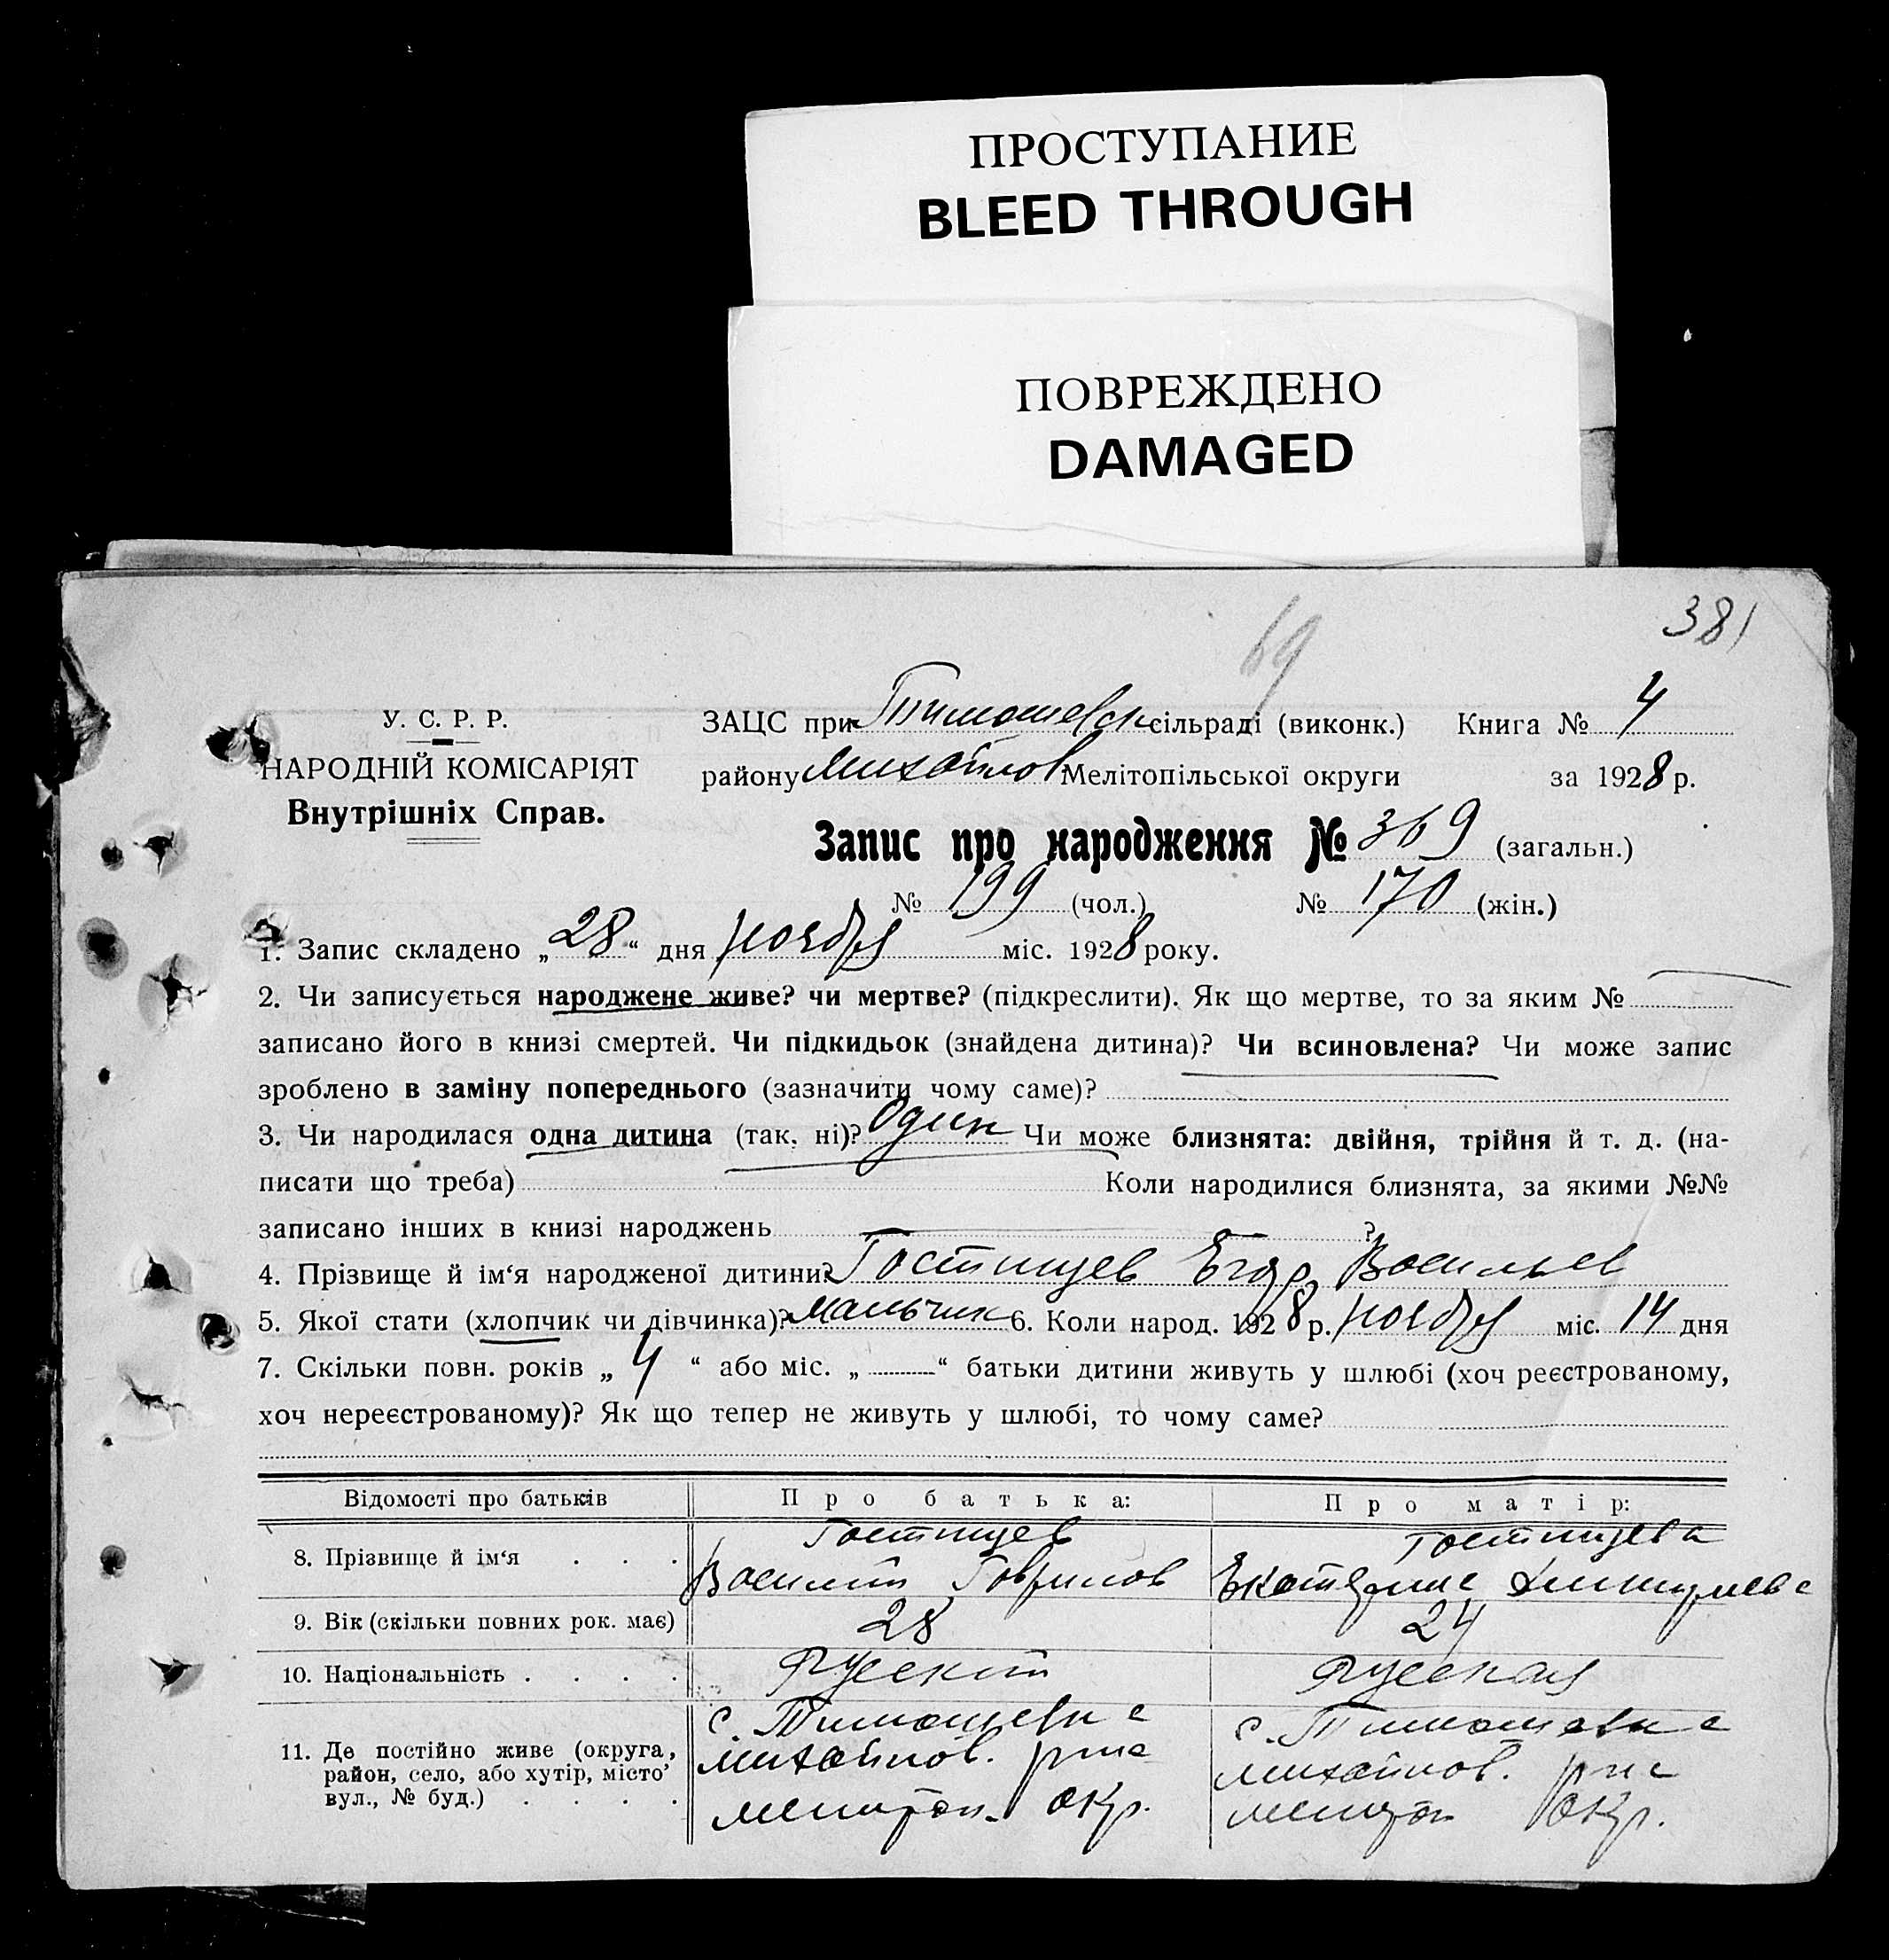 ПРОСТУПАНИЕ
BLEED THROUGH
ПОВРЕЖДЕНО
DAMAGED
381
69
У. С. Р. Р.
НАРОДНІЙ КОМІСАРІЯТ
Внутрішніх Справ.
ЗАЦС при Тимошевск сільраді (виконк.) Книга № 4
району Михайлов Мелітопільської округи за 1928 р.
Запис про народження № 369 (загальн.)
№ 199 (чол.) № 170 (жін.)
1. Запис складено „28“ дня ноября міс. 1928 року.
2. Чи записується народжене живе? чи мертве? (підкреслити). Як що мертве, то за яким №
записано його в книзі смертей. Чи підкидьок (знайдена дитина)? Чи всиновлена? Чи може запис
зроблено в заміну попереднього (зазначити чому саме)?
3. Чи народилася одна дитина (так, ні)? один Чи може близнята: двійня, трійня й т. д. (на-
писати що треба) Коли народилися близнята, за якими №№
записано інших в книзі народжень ?
4. Прізвище й ім‘я народженої дитини? Гостищев Егор Васильев
5. Якої стати (хлопчик чи дівчинка)? мальчик 6. Коли народ. 1928 р. ноября міс. 14 дня
7. Скільки повн. років „4“ або міс. „ “ батьки дитини живуть у шлюбі (хоч реєстрованому,
хоч нереєстрованому)? Як що тепер не живуть у шлюбі, то чому саме?
Відомості про батьків Про батька: Про матір:
8. Прізвище й ім‘я . . . Гостищев Гостищева
Василий Гаврилов Екатерина
9. Вік (скільки повних рок. має) 28 24
10. Національність . . . . Русский Русская
11. Де постійно живе (округа, район, село, або хутір, місто, вул., № буд.) . . . .
с. Тимошевка с. Тимошевка
Михайлов. р-на Михайлов. р-на
Мелитоп. окр. Мелитоп окр.